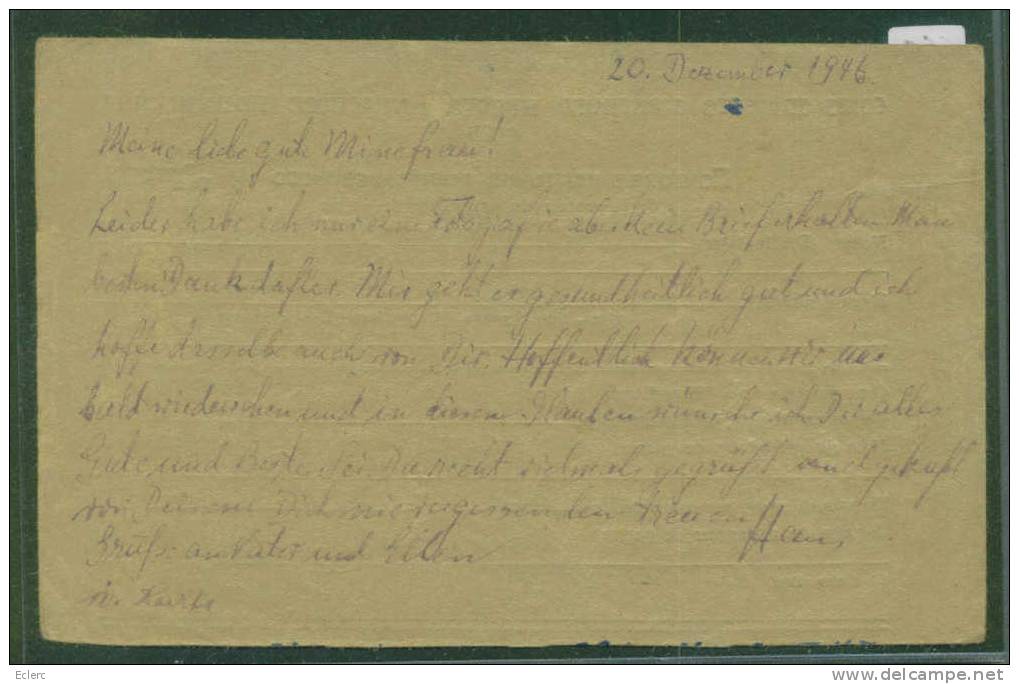 20. Dezember 1946.
Meine liebe gute Minefrau!
Leider habe ich nur eine Fotografie aber kein Brief erhalten
besten Dank dafür. Mir geht es gesundheitlich gut und ich
hoffe dasselbe auch von Dir. Hoffentlich können wir uns
bald wiedersehen und in diesem Glauben wünsche ich Dir alles
Gute und Beste. Sei Du recht vielmals gegrüßt und geküßt
von Deinem Dich nie vergessenden treuen Hans
Grüße an Vater und
Eclerc
www.delcampe.net